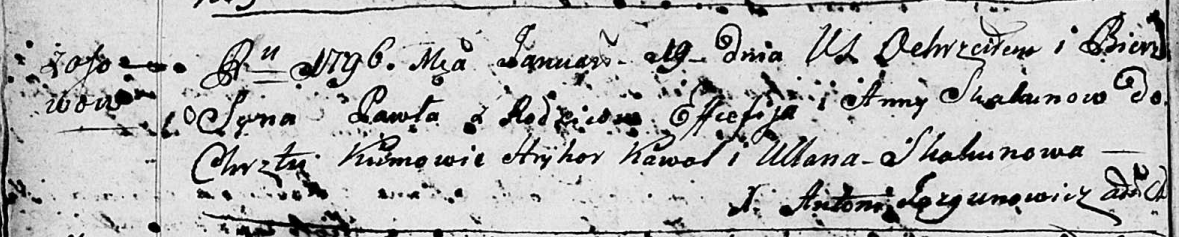 Ru 1796. Mca Januar. 19 dnia Us Ochrzciłem i Bierz
Syna Pawła z Rodzicow i Anny Skakunow do
Chrztu Kumowie Hryhor Kawal i Ullana Skakunowa
X Antoni Jazgunowicz